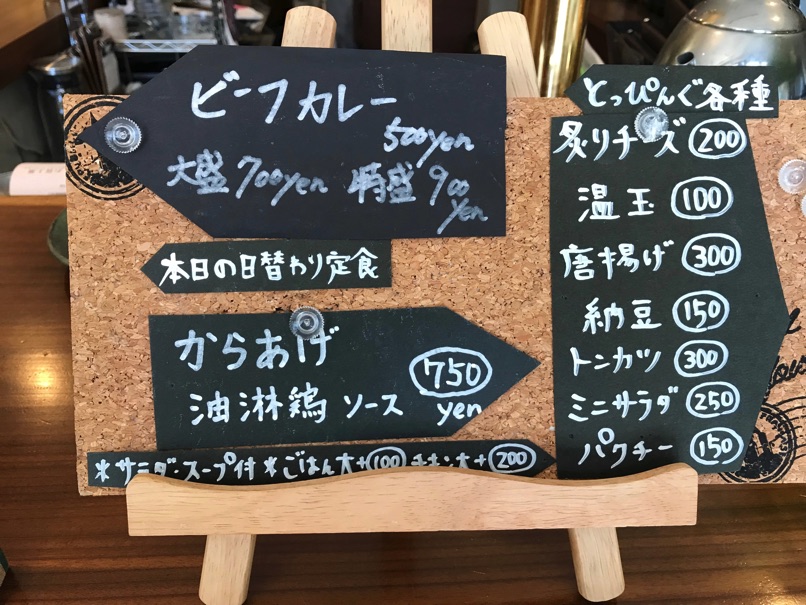 ビーフカレー
500yen
大盛700yen 特盛900
yen
本日の日替わり定食
からあげ
油淋鶏ソース 750
yen
＊サラダ・スープ付 ＊ごはん大+100 チキン大+200
とっぴんぐ各種
炙りチーズ 200
温玉 100
唐揚げ 300
納豆 150
トンカツ 300
ミニサラダ 250
パクチー 150